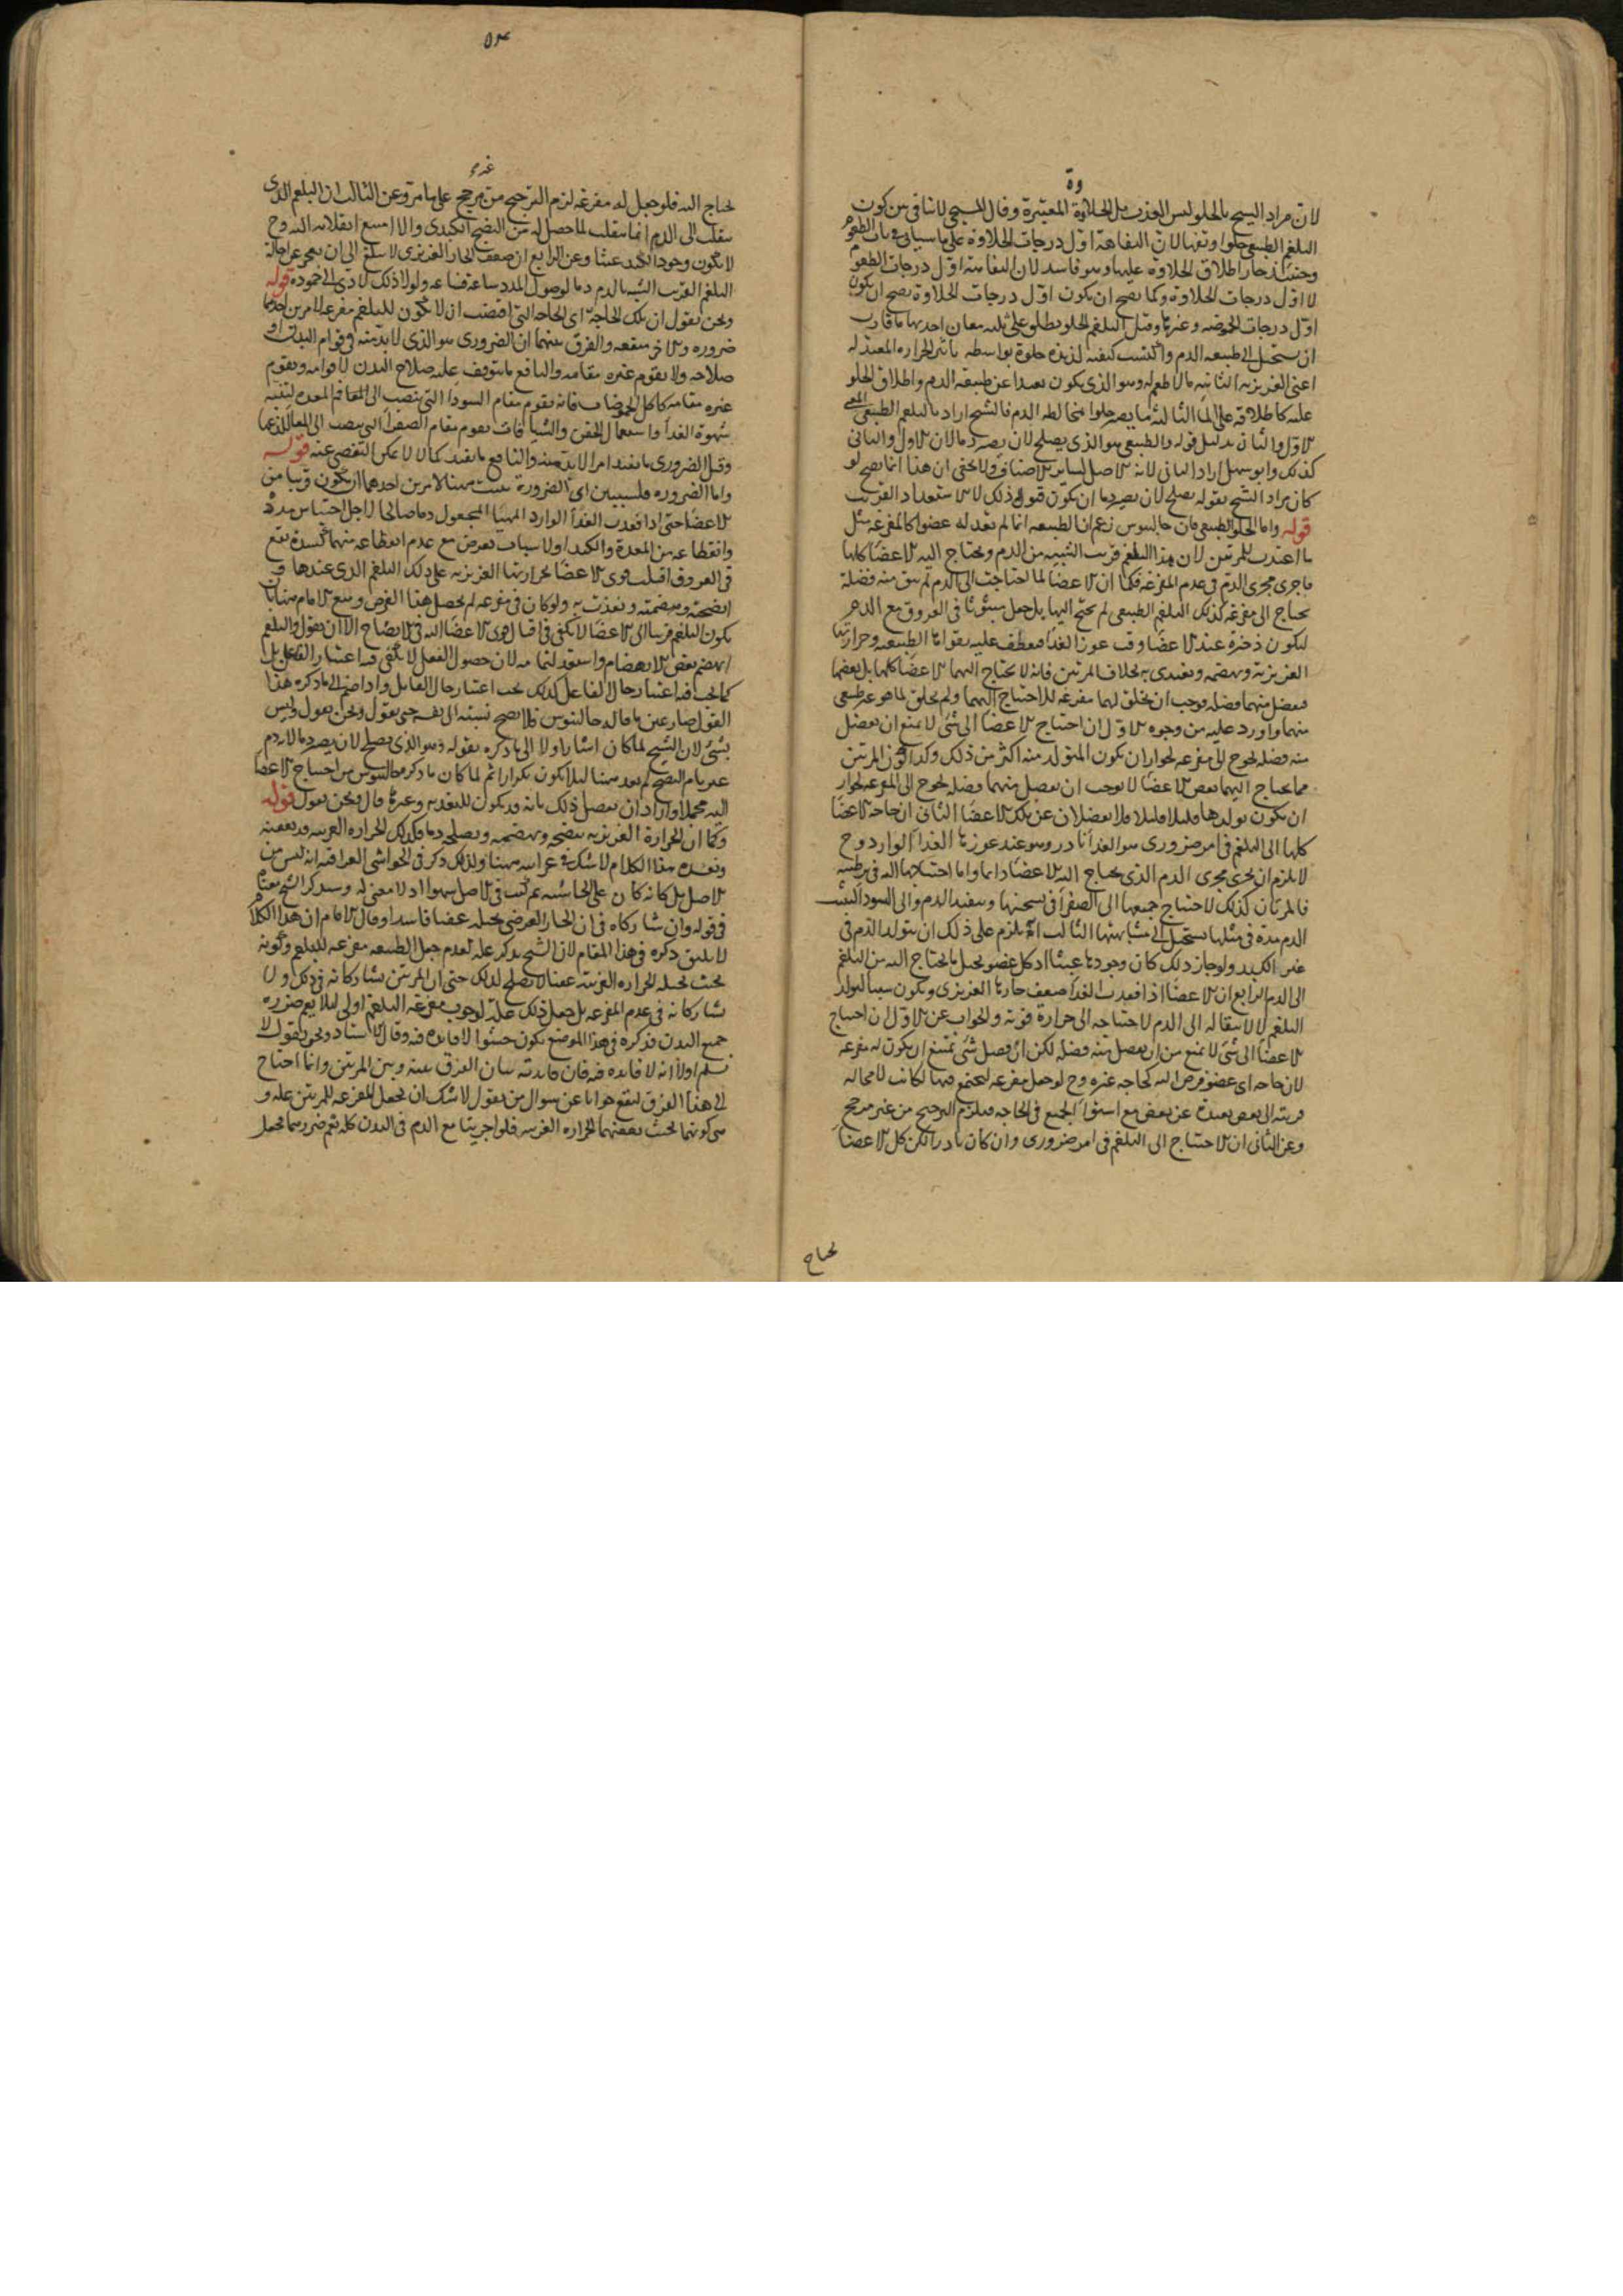 لان مراد الشيخ بالحلو ليس العذب بل الحلاوة المعتبرة وقال المسيحي لا تنافى بين كون
البلغم الطبيعى حلوا وتفها لان التفاهة اول درجات الحلاوة على ما سياتى فى باب الطعوم
وحينئذ جاز اطلاق الحلاوة عليها وهو فاسد لان التفاهة اول درجات الطعوم
لا اول درجات الحلاوة وكما يصح ان يكون اول درجات الحلاوة يصح ان يكون
اول درجات الحموضه وغيرها وقيل البلغم الحلو يطلق على ثلثه معان احديها ما قارب
ان يستحيل الى طبيعه الدم واكتسب كيفيه لذيذه حلوة بواسطه تاثير الحراره المعتدله
اعنى الغريزيه الثانيه ما لا طعم له وهو الذى يكون بعيدا عن طبيعه الدم واطلاق الحلو
عليه كاطلاقه على الما الثالثه ما يصير حلوا بمخالطه الدم فالشيخ اراد بالبلغم الطبيعى المعنى
الاول والثانى بدليل قوله والطبيعى هو الذى يصلح لان يصير دما لان الاول والثانى
كذلك وابو سهل اراد الثانى لانه الاصل لساير الاصناف ولا يخفى ان هذا انما يصح لو
كان مراد الشيخ بقوله يصلح لان يصير دما ان يكون قبوله لذلك لا بالاستعداد القريب
قوله واما الحلو الطبيعى فان جالينوس زعم ان الطبيعه انما لم تعد له عضوا كالمفرغه مثل
ما اعدت للمرتين لان هذا البلغم قريب الشبيه من الدم ويحتاج اليه الاعضا كلها
فاجرى مجرى الدم فى عدم المفرغه فكما ان الاعضا لما احتاجت الى الدم لم يبق منه فضلة
يحتاج الى مفرغه كذلك البلغم الطبيعى لم يحتج اليها بل جعل مبثوثا فى العروق مع الدم
ليكون ذخرة عند الاعضا وقت عوز الغذا فعطف عليه بقواها الطبيعيه وحرارتها
الغريزيه وتهضمه وتغتذى به بخلاف المرتين فانه لا يحتاج اليهما الاعضا كلها بل بعضها
ففضل منهما فضله فوجب ان يخلق لهما مفرغه للاحتياج اليهما ولم يخلق لما هو غير طبيعى
منهما واورد عليه من وجوه الاول ان احتياج الاعضا الى شى لا يمنع ان يفضل
منه فضله تحوج الى مفرغه لجواز ان يكون المتولد منه اكثر من ذلك وكذا كون المرتين
مما يحتاج اليهما بعض الاعضا لا يوجب ان يفضل منهما فضله تحوج الى المفرغه لجواز
ان يكون تولدهما قليلا قليلا فلا يفضلان عن تلك الاعضا الثانى ان حاجه الاعضا
كلها الى البلغم فى امر ضرورى هو الغذا نادر وهو عند عوزها الغذا الوارد وح
لا يلزم ان يجرى مجرى الدم الذى يحتاج اليه الاعضا دايما واما احتياجها اليه فى ترطيبه
فالمرتان كذلك لاحتياج جميعها الى الصفرا فى تسخينها وتنفيذ الدم والى السودا لتثبت
الدم مدة فى مثلها يستحيل الى مشابهتها الثالث انه يلزم على ذلك ان يتولد الدم فى
غير الكبد ولو جاز ذلك كان وجودها عبثا اذ كل عضو يحيل ما يحتاج اليه من البلغم
الى الدم الرابع ان الاعضا اذا فقدت الغذا ضعف حارها الغريزى ويكون سببا لتولد
البلغم لا لانتقاله الى الدم لاحتياجه الى حرارة قوية والجواب عن الاول ان احتياج
الاعضا الى شى لا يمنع من ان يفضل منه فضله لكن ان فضل شى يمتنع ان يكون له مفرغه
لان حاجه اى عضو فرض اليه كحاجه غيره وح لو جعل مفرغه ليجتمع فيها لكانت لا محاله
قريبه الى بعض بعيدة عن بعض مع استوا الجميع فى الحاجه فيلزم الترجيح من غير مرجح
وعن الثانى ان الاحتياج الى البلغم فى امر ضرورى وان كان نادرا لكن كل الاعضا
يحتاج
يحتاج اليه فلو جعل له مفرغه لزم الترجيح من غير مرجح على ما مر وعن الثالث ان البلغم الذى
ينقلب الى الدم انما ينقلب لما حصل له من النضج الكبدى والا امتنع انقلابه اليه وح
لا يكون وجود الكبد عبثا وعن الرابع ان ضعف الحار الغريزى لا يبلغ الى ان يعجز عن احالة
البلغم القريب الشبه بالدم دما لوصول المدد ساعة فساعة ولولا ذلك لادى الى خموده قوله
ونحن نقول ان تلك الحاجة اى الحاجه التى اقتضت ان لا يكون للبلغم مفرغه لامرين احدهما
ضروره والاخر منفعه والفرق بينهما ان الضرورى هو الذى لا بد منه فى قوام البدن او
صلاحه ولا يقوم غيره مقامه والنافع ما يتوقف عليه صلاح البدن لا قوامه ويقوم
غيره مقامه كاكل الحموضات فانه يقوم مقام السودا التى تنصب الى فم المعده لتنبيه
شهوة الغذا واستعمال الحقن والشيافات يقوم مقام الصفرا التى تنصب الى المعا للذعها
وقيل الضرورى ما يفيد امرا لا بد منه والنافع ما يفيد كمالا لا يمكن التقصى عنه قوله
واما الضروره فلسببين اى الضرورة بسبب هنا لامرين احدهما ان يكون قريبا من
الاعضا حتى اذا فقدت الغذا الوارد المهيا المجعول دما صالحا لاجل احتباس مدده
وانقطاعه من المعدة والكبد او لاسباب تعرض مع عدم انقطاعه منهما كسدة تقع
فى العروق اقبلت قوى الاعضا بحرارتها الغريزيه على ذلك البلغم الذى عندها و
انضجته وهضمته وتغذت به ولو كان فى مفرغه لم يحصل هذا الغرض ومنع الامام منها بان
يكون البلغم قريبا الى الاعضا لا يكفى فى اقبال قوى الاعضا اليه فى الانضاج الا ان يقول والبلغم
انهضم بعض الانهضام واستعد لتمامه لان حصول الفعل لا يكفى فيه اعتبار الفاعل بل
كما يجب فيه اعتبار حال الفاعل كذلك يجب اعتبار حال القابل واذا ضم الى ما ذكره هذا
القول صار عين ما قاله جالينوس فلا يصح نسبته الى نفسه حتى يقول ونحن نقول وليس
بشى لان الشيخ لما كان اشار اولا الى ما ذكره بقوله وهو الذى يصلح لان يصير دما لا دم
غير تام النضج لم يعد هنا لئلا يكون تكرارا ثم لما كان ما ذكره جالينوس من احتياج الاعضا
اليه مجملا واراد ان يفصل ذلك بانه قد يكون للتغذيه وغيرها قال ونحن نقول قوله
وكما ان الحرارة الغريزيه تنضجه وتهضمه وتصلحه دما فكذلك الحراره الغريبه قد تعفنه
وتفسده هذا الكلام لا شك فى غرابته هنا ولذلك ذكر فى الحواشى العراقيه انه ليس من
الاصل بل كانه كان على الحاشيه ثم كتب فى الاصل سهوا اذ لا معنى له وسيذكر الشيخ معناه
فى قوله وان شاركاه فى ان الحار العرضى يحيله عفنا فاسدا وقال الامام ان هذا الكلام
لا يليق ذكره فى هذا المقام لان الشيخ يذكر علة لعدم جعل الطبيعه مفرغه للبلغم وكونه
بحيث تحيله الحراره الغريبه عفنا لا يصلح لذلك حتى ان المرتين تشاركانه فى ذلك ولا
تشاركانه فى عدم المفرغه بل جعل ذلك علة لوجوب مفرغه البلغم اولى لئلا يعم ضرره
جميع البدن فذكره فى هذا الموضع يكون حشوا لا فايده فيه وقال الاستاد ونحن نقول لا
نسلم اولا انه لا فايده فيه فان فايدته بيان الفرق بينه وبين المرتين وانما احتاج
الى هذا الفرق ليقع جوابا عن سوال من يقول لا شك ان تجعل المفرغه للمرتين علة و
هى كونهما بحيث تعفنهما الحراره الغريبه فلو اجريتا مع الدم فى البدن كله لعم ضررهما فجعل